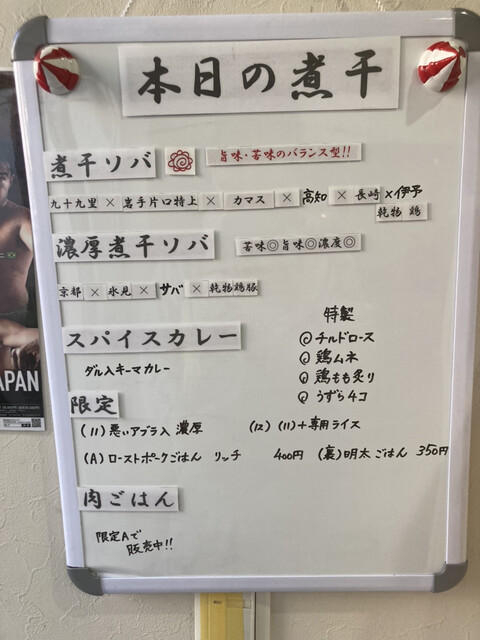 本日の煮干
煮干ソバ 旨味・苦味のバランス型!!
九十九里 × 岩手片口特上 × カマス × 高知 × 長崎 × 伊予
乾物 鶏
濃厚煮干ソバ 苦味◎旨味◎濃度◎
京都 × 氷見 × サバ × 乾物鶏豚
スパイスカレー
ダル入キーマカレー
特製
チルドロース
鶏ムネ
鶏もも炙り
うずら4コ
限定
(11) 悪いアブラ入 濃厚 (12) (11)+専用ライス
(A) ローストポークごはん リッチ 400円 (裏) 明太ごはん 350円
肉ごはん
限定Aで
販売中!!
PAN